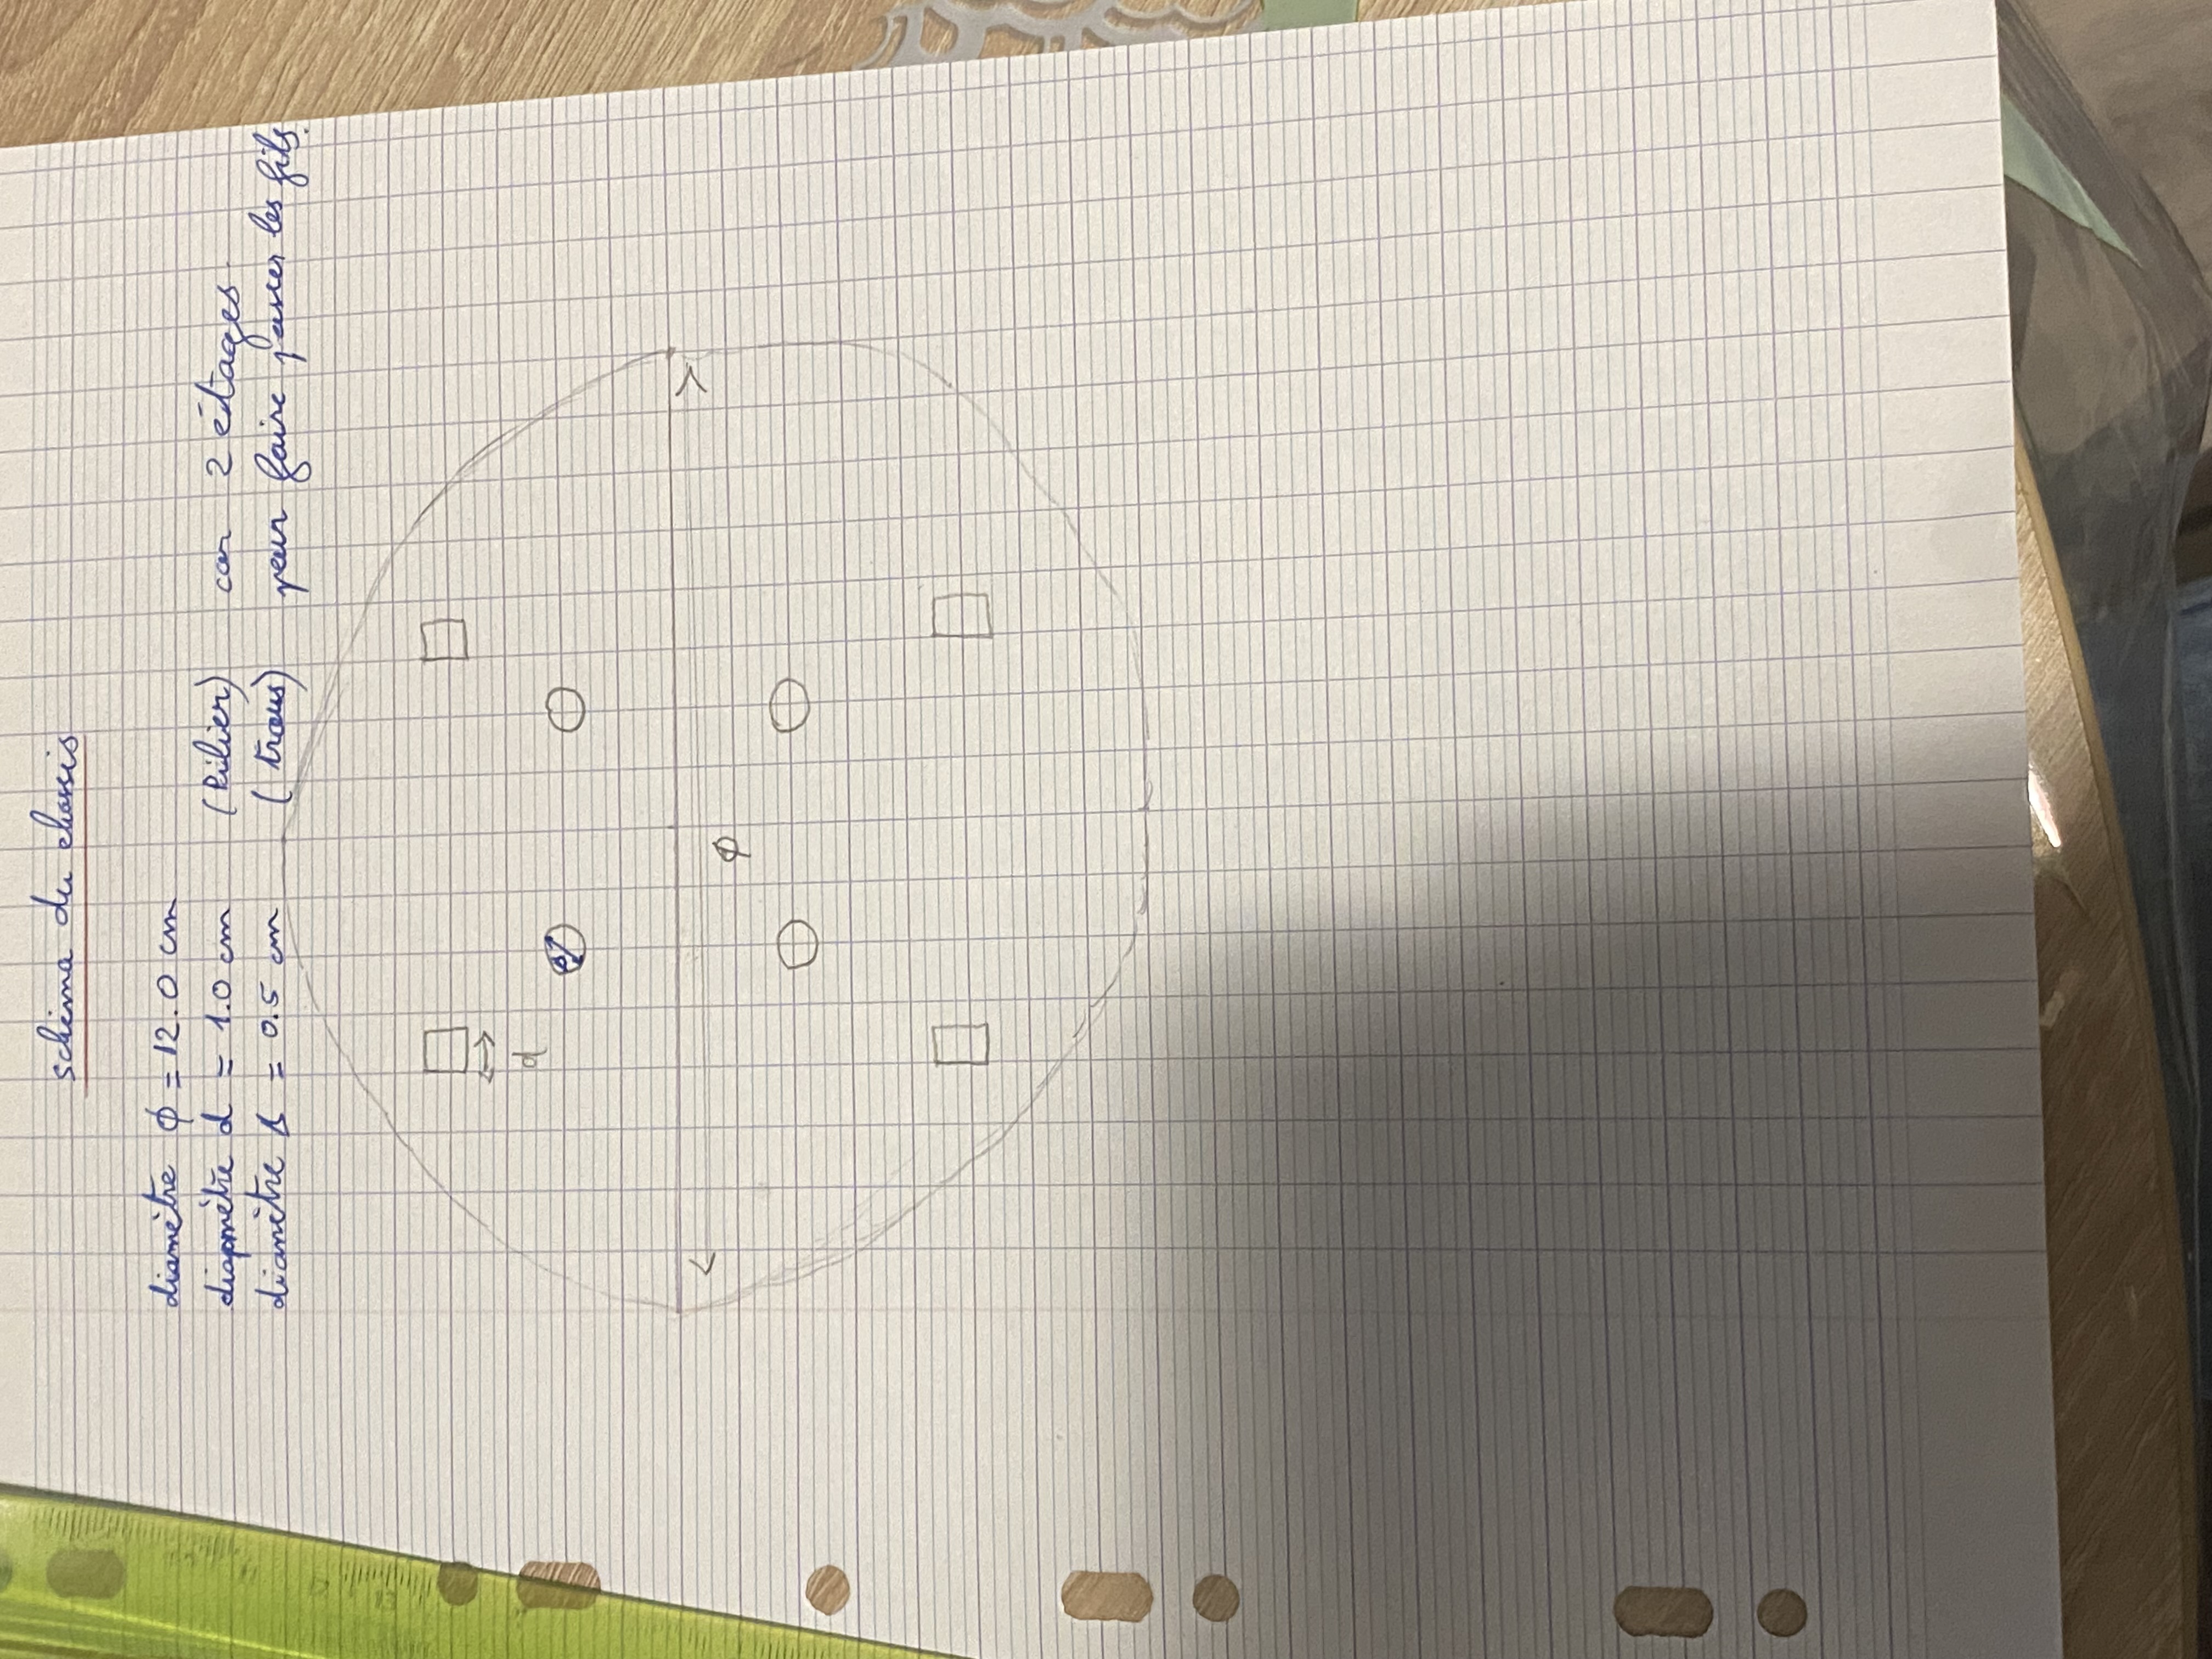 schéma du chassis
diamètre ϕ = 12.0 cm
diapmètre d = 1.0 cm (Pilier) car 2 étages.
diamètre = 0.5 cm (trous) pour faire passer les fils.
d
ϕ